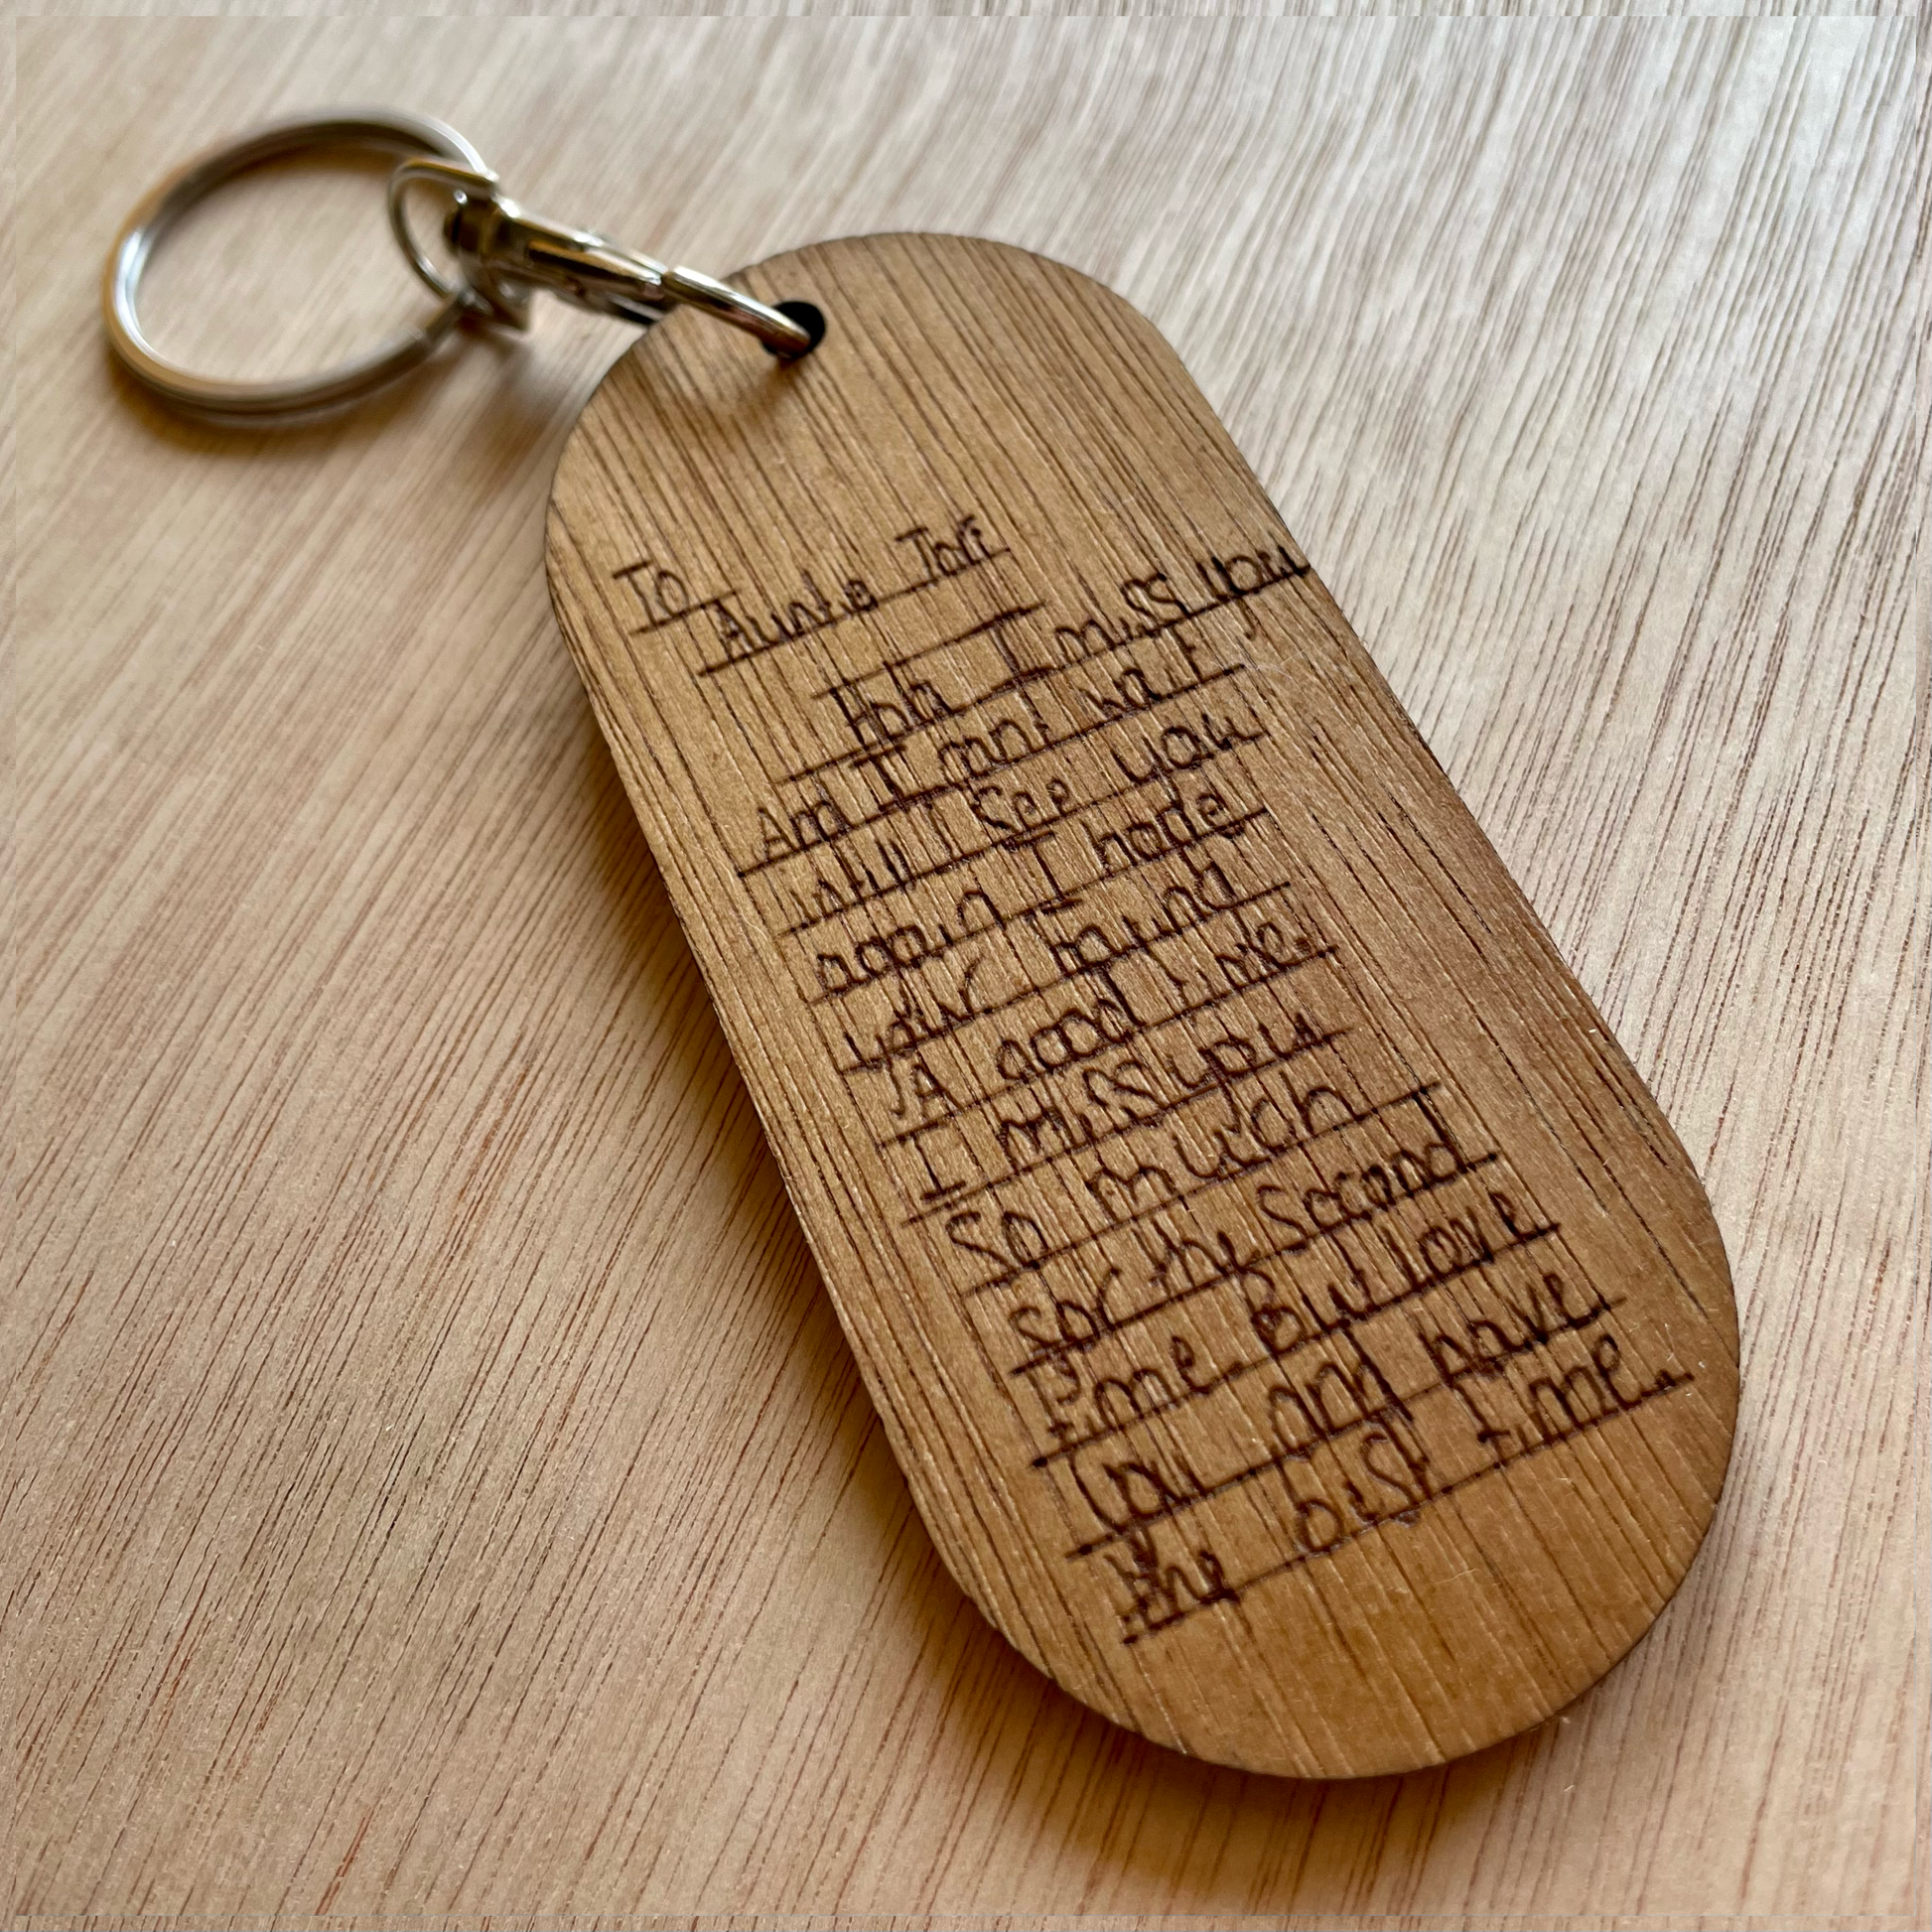 To
Auntie Tori
Hola I miss you
And I cant wait
until I See you
again I hope
your having
A good time.
I miss you
So much
for the Second
time. But love
you and have
the best time.